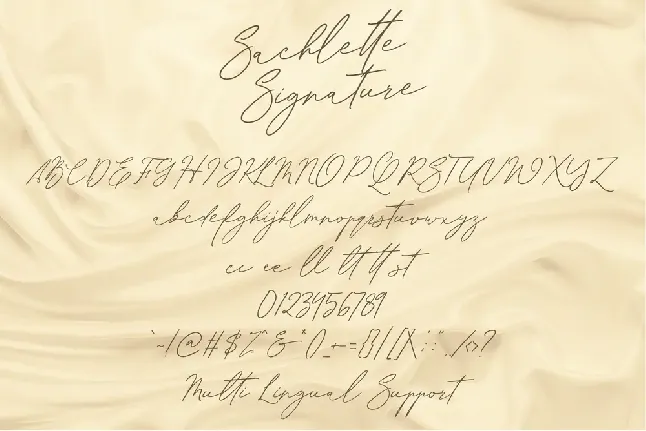 Sachlette
Signature
ABCDEFGHIJKLMNOPQRSTUVWXYZ
abcdefghijklmnopqrstuvwxyz
cc ee ll lt tt st
0123456789
`~!@#$%^&*()_-+={}|[]\:;"',./<>?
Multi Lingual Support